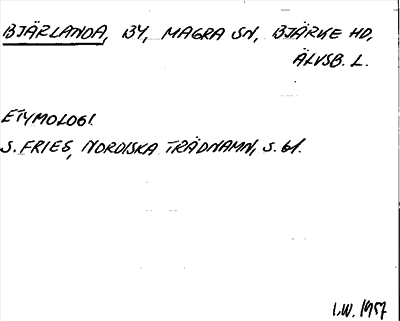 BJÄRLANDA, BY, MAGRA SN, BJÄRKE HD,
ÄLVSB. L.
ETYMOLOGI.
S. FRIES, NORDISKA TRÄDNAMN, S. 61.
I.W. 1957